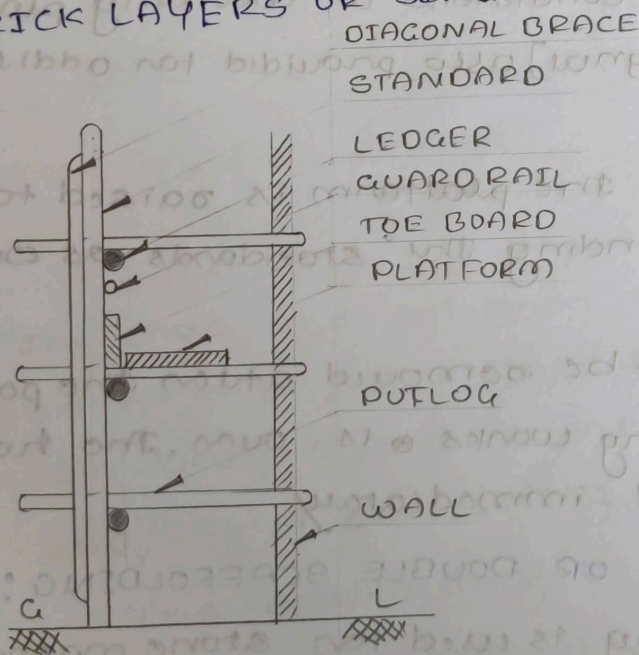 RICK LAYERS OR
DIAGONAL BRACE
STANDARD
LEDGER
GUARD RAIL
TOE BOARD
PLATFORM
PUTLOG
WALL
G L